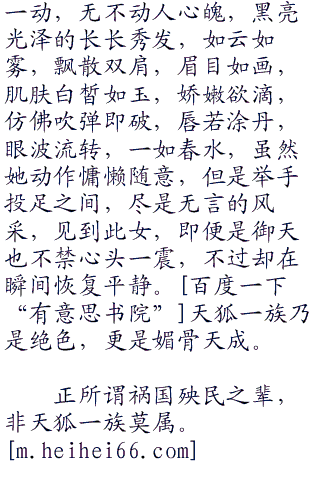 一动，无不动人心魄，黑亮
光泽的长长秀发，如云如
雾，飘散双肩，眉目如画，
肌肤白皙如玉，娇嫩欲滴，
仿佛吹弹即破，唇若涂丹，
眼波流转，一如春水，虽然
她动作慵懒随意，但是举手
投足之间，尽是无言的风
采，见到此女，即便是御天
也不禁心头一震，不过却在
瞬间恢复平静。[百度一下
“有意思书院”]天狐一族乃
是绝色，更是媚骨天成。
正所谓祸国殃民之辈，
非天狐一族莫属。
[m.heihei66.com]